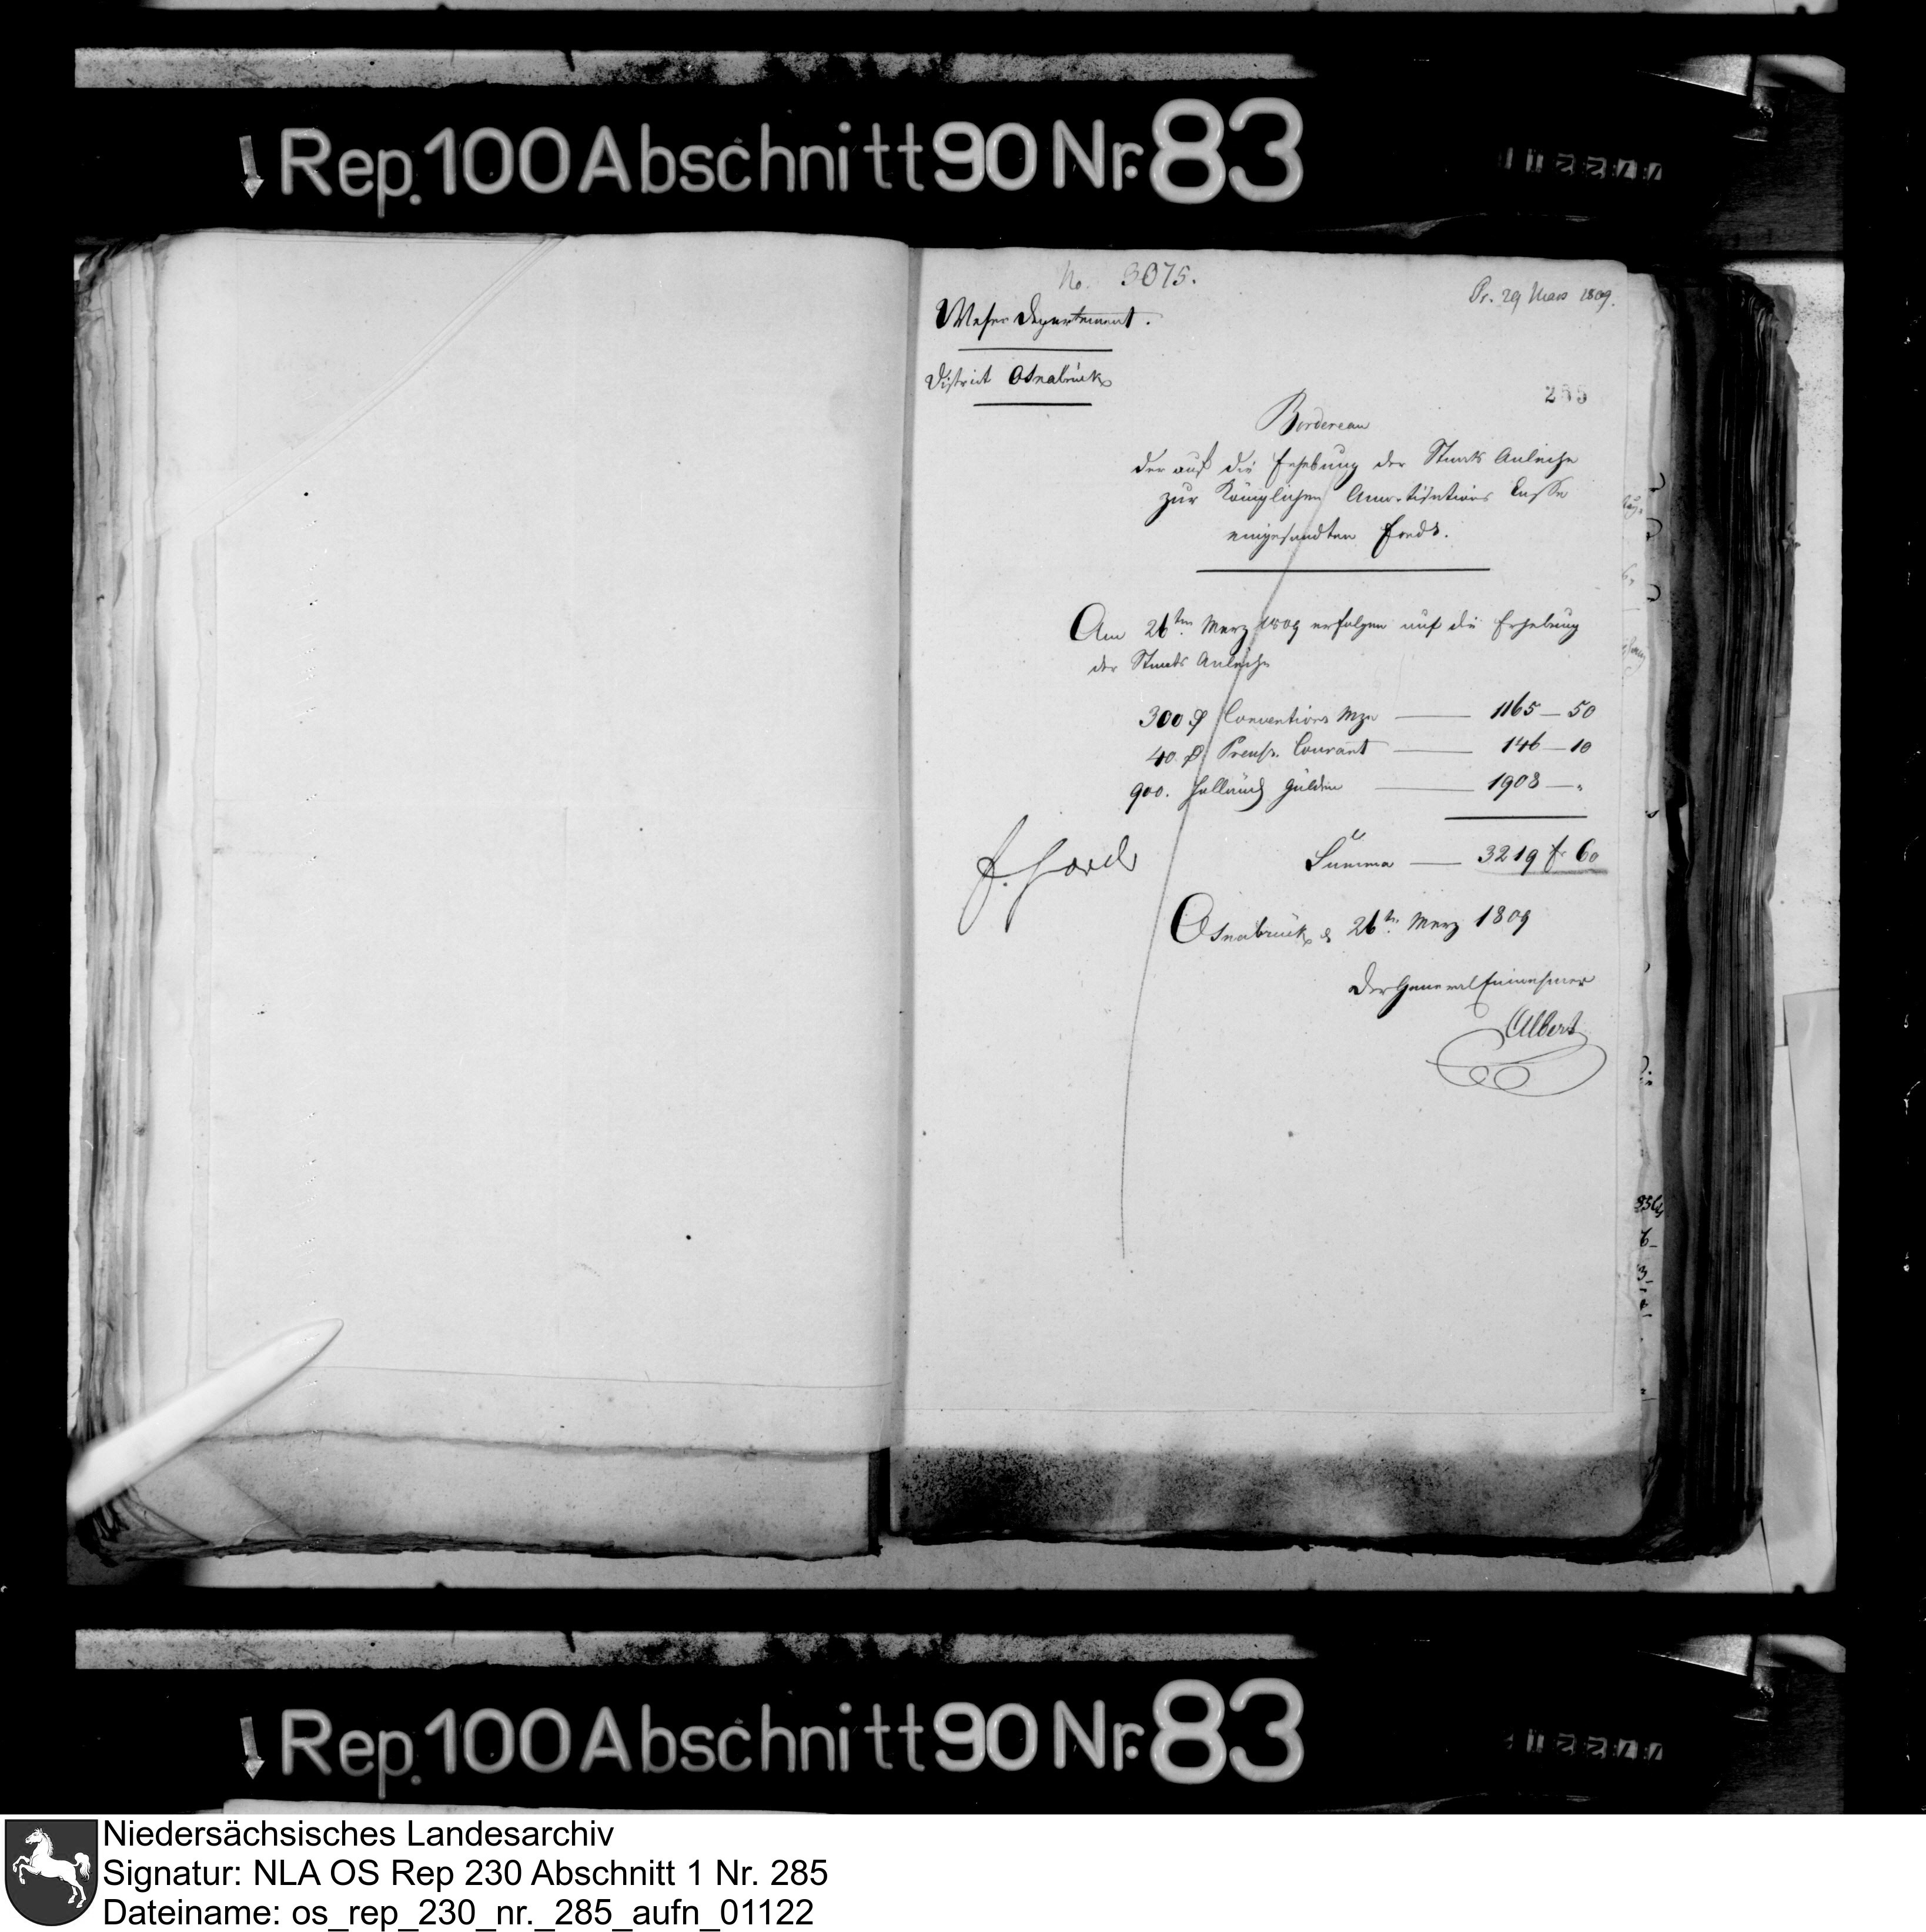 Rep. 100 Abschnitt 90 Nr. 83
No. 3075.
Pr. 29 Mars 1809.
Weser Departement.
District Osnabrück
285
Bordereau
der auf die Erhebung der Staats Anleihe
zur Königlichen Amortisations Casse
eingesandten Fonds.
Am 26ten Merz 1809 erfolgen auf die Erhebung
der Staats Anleihe
300 Conventions Mze — 1165 — 50
40 Preuss. Courant — 146 — 10
900. Holländ Gülden — 1908 — "
Summa — 3219 fr 60
Osnabrück d 26tn Merz 1809
Der General Einnehmer
Albert
Rep. 100 Abschnitt 90 Nr. 83
Niedersächsisches Landesarchiv
Signatur: NLA OS Rep 230 Abschnitt 1 Nr. 285
Dateiname: os_rep_230_nr._285_aufn_01122